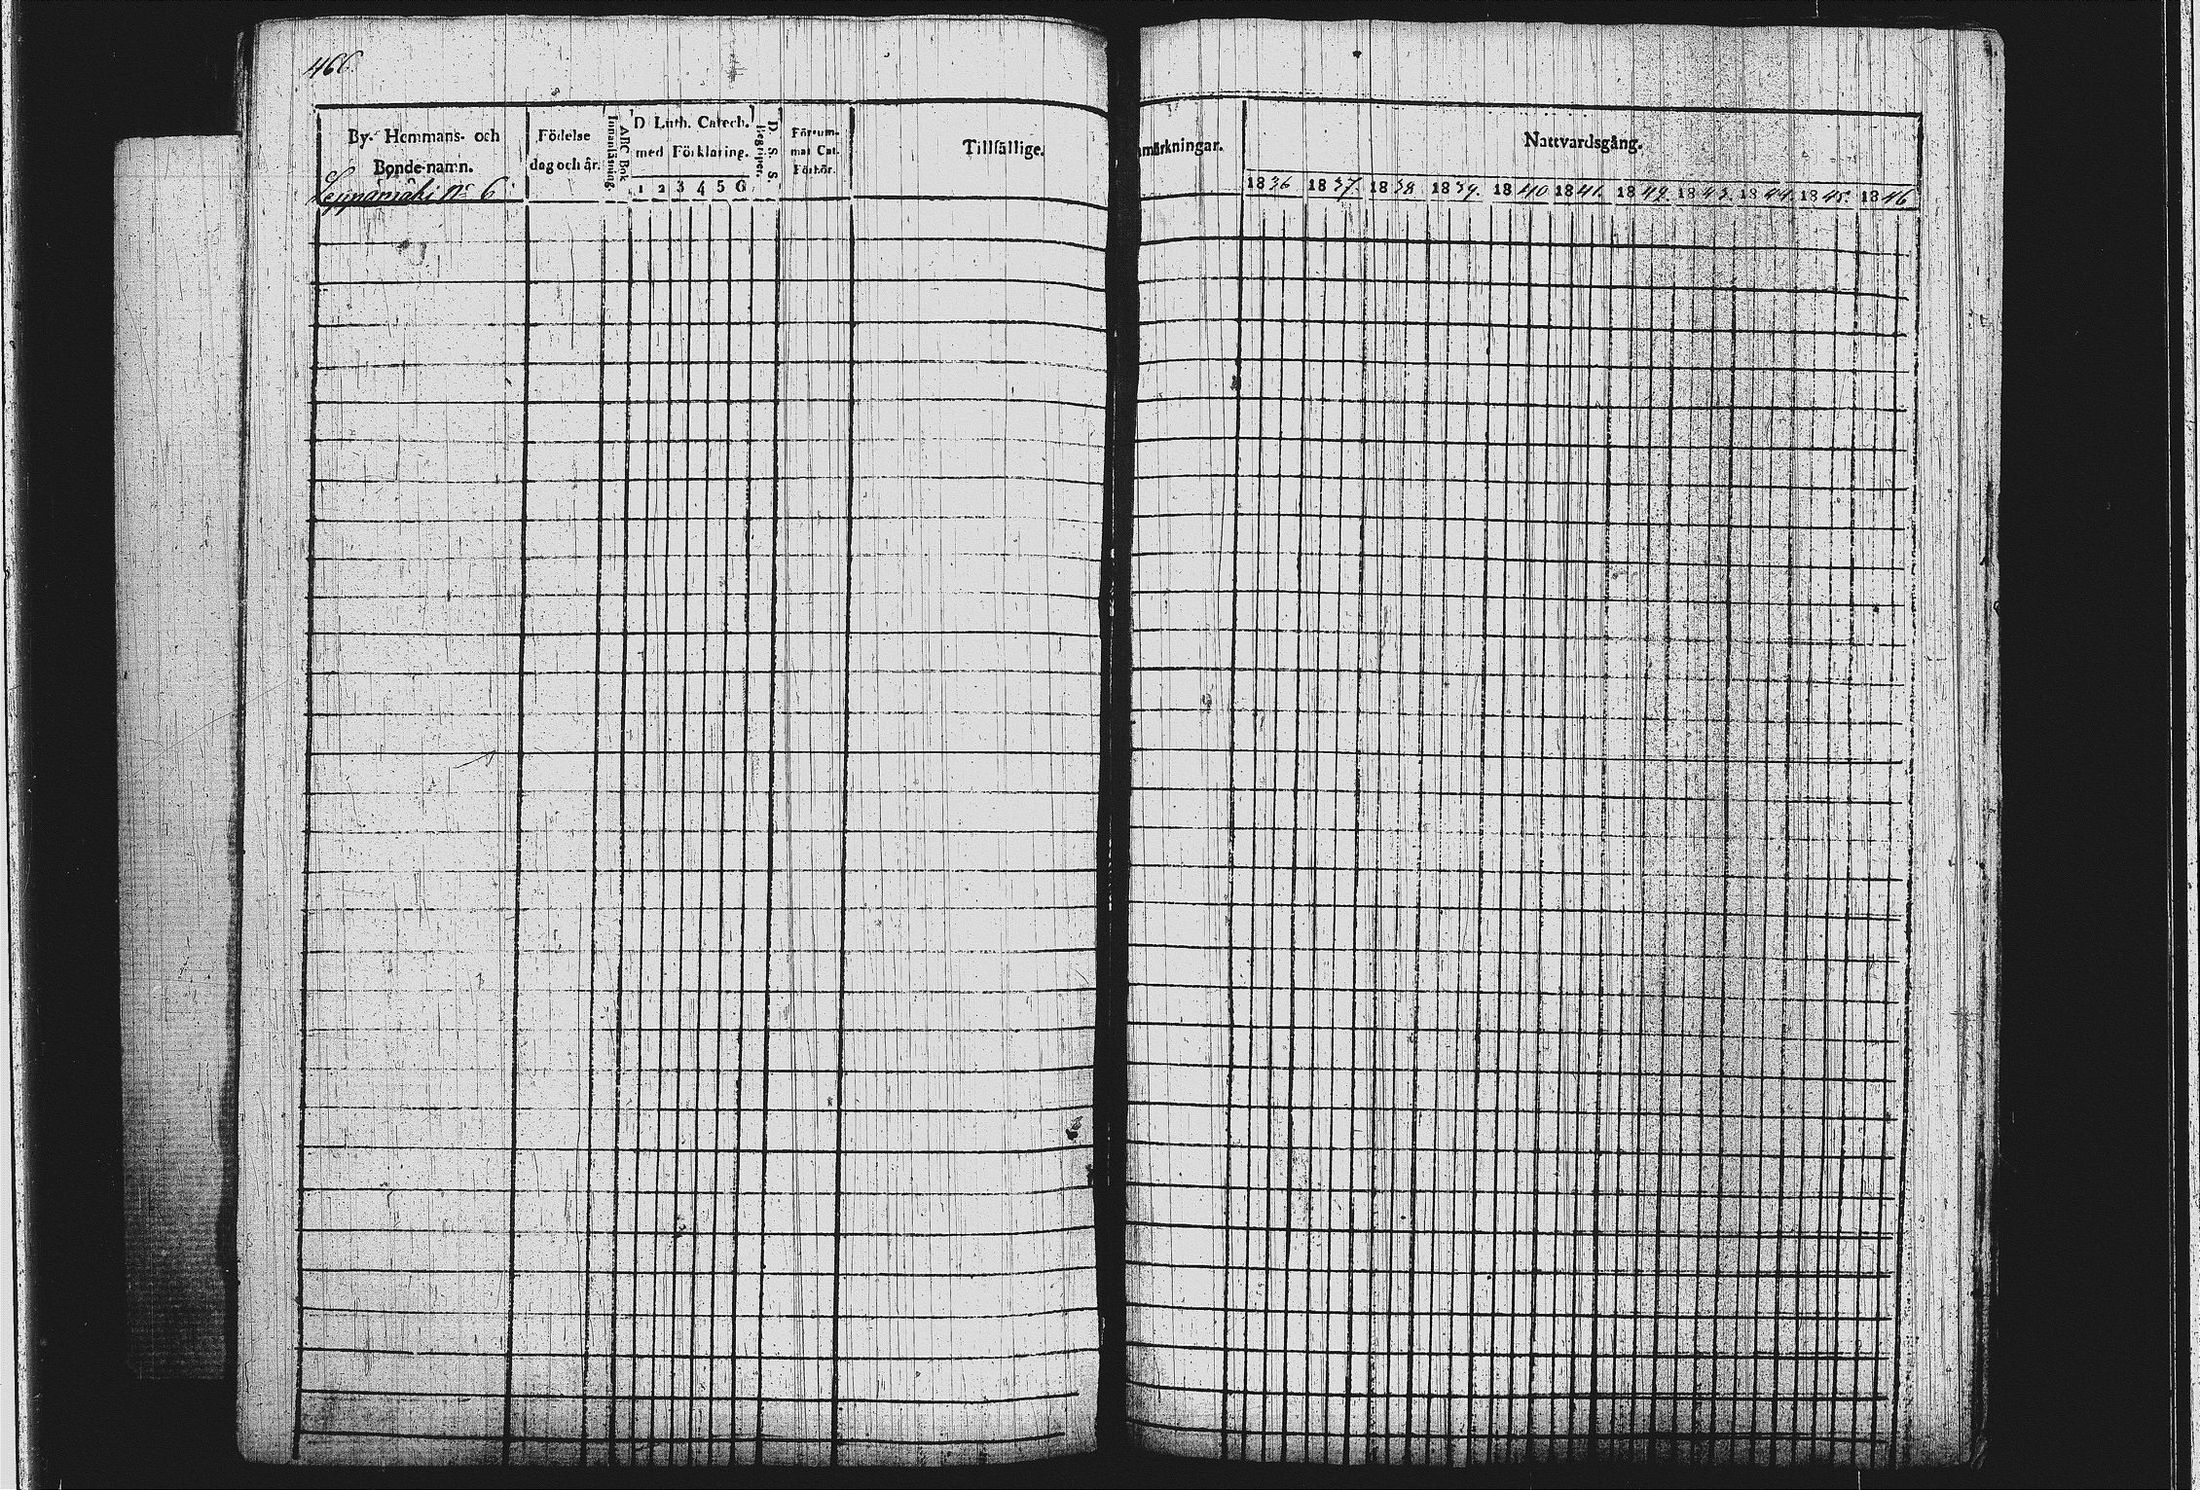 466.
By- Hemmans- och
Bonde-namn.
Leppämäki No 6
Födelse
dag och år.
Innanläsning.
ABC Bok
D Luth. Catech.
med Förklaring.
1 2 3 4 5 6
Begriper.
D. S. S.
Försum-
mat Cat.
Förhör.
Tillfällige.
märkningar.
Nattvardsgång.
1836 1837. 1838 1839. 1840 1841. 1842. 1843. 1844. 1845. 1846